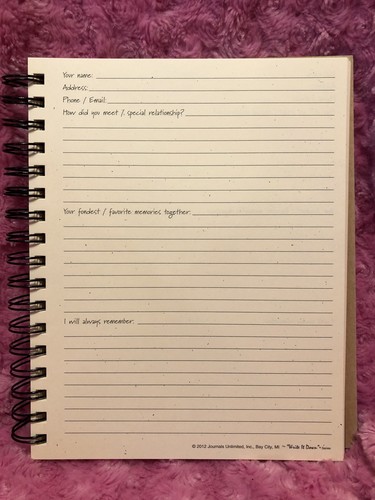 Your name:
Address:
Phone / Email:
How did you meet / special relationship?
Your fondest / favorite memories together:
I will always remember:
© 2012 Journals Unlimited, Inc., Bay City, MI ~ "Write It Down" ~ Series